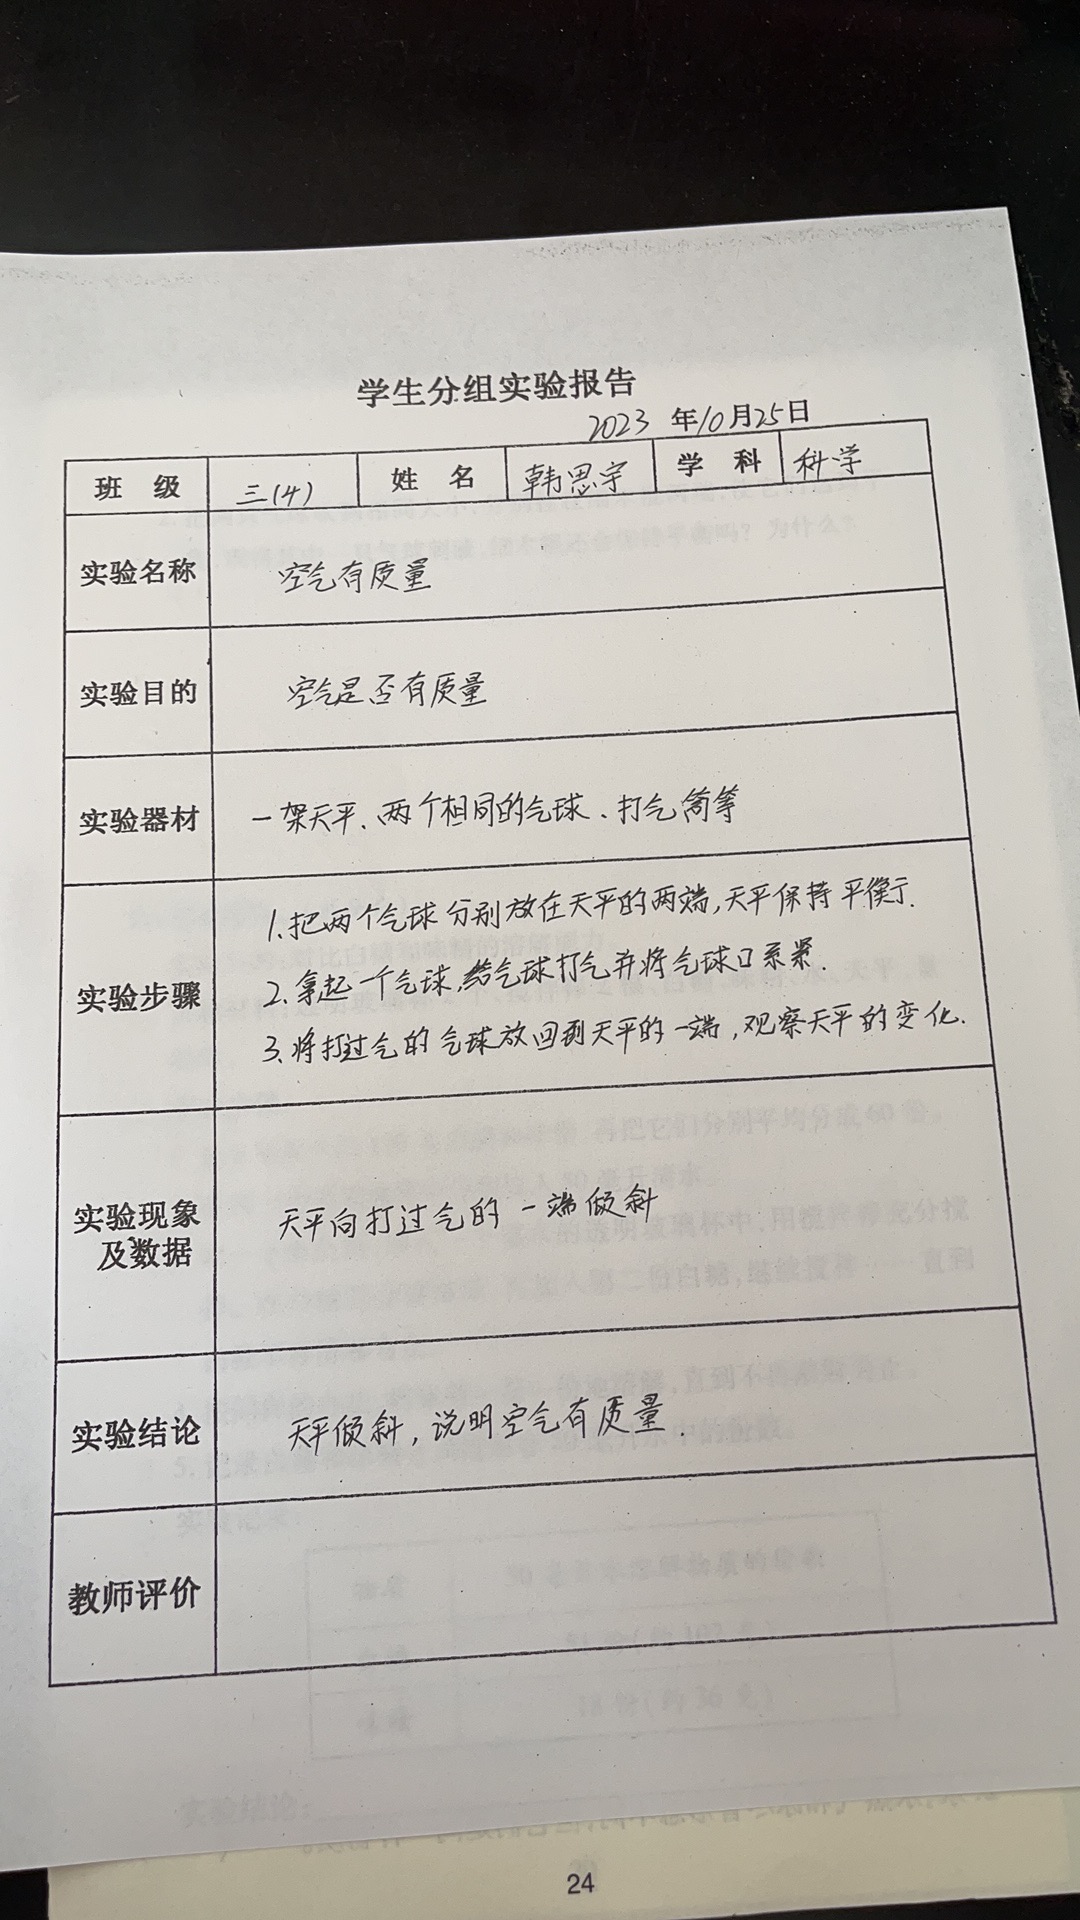 学生分组实验报告
2023 年10月25日
班 级 三(4) 姓 名 韩思宇 学 科 科学
实验名称 空气有质量
实验目的 空气是否有质量
实验器材 一架天平、两个相同的气球、打气筒等
实验步骤
1.把两个气球分别放在天平的两端,天平保持平衡.
2.拿起一个气球,给气球打气并将气球口系紧.
3.将打过气的气球放回到天平的一端,观察天平的变化.
实验现象
及数据
天平向打过气的一端倾斜
实验结论 天平倾斜,说明空气有质量.
教师评价
24